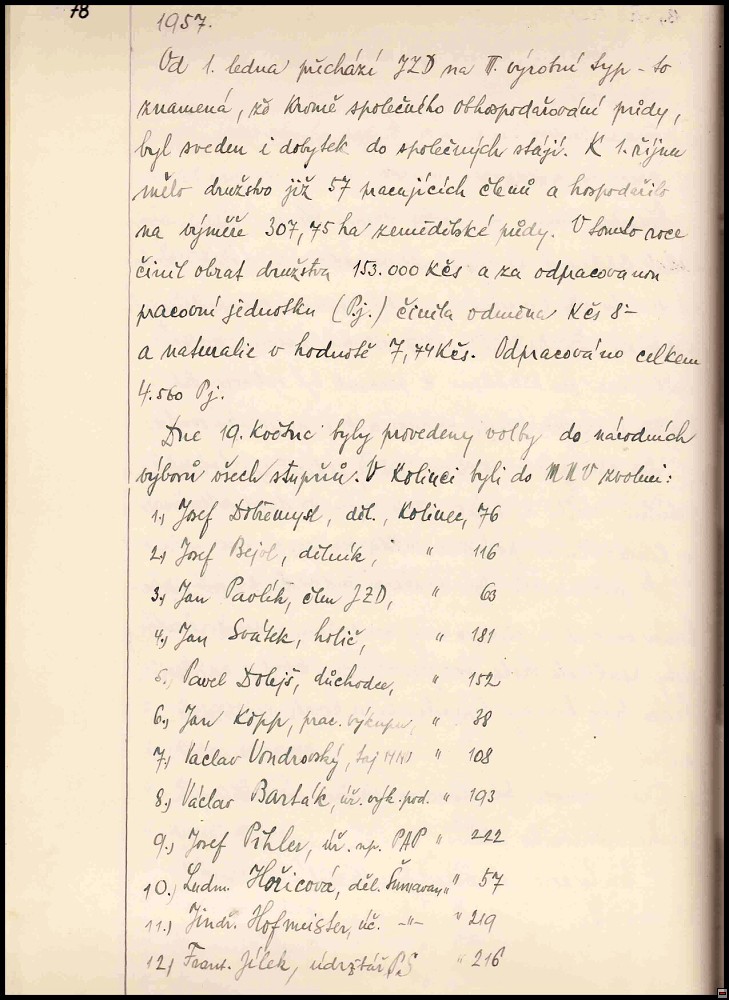 78
1957.
Od 1. ledna přichází JZD na II. výrobní typ - to
znamená, že kromě společného obhospodařování půdy,
byl sveden i dobytek do společných stájí. K 1. říjnu
mělo družstvo již 57 pracujících členů a hospodařilo
na výměře 307,75 ha zemědělské půdy. V tomto roce
činil obrat družstva 153.000 Kčs a za odpracovanou
pracovní jednotku (Pj.) činila odměna Kčs 8-
a naturalie v hodnotě 7,74 Kčs. Odpracováno celkem
4.560 Pj.
Dne 19. května byly provedeny volby do národních
výborů všech stupňů. V Kolinci byli do MNV zvoleni:
1.) Josef Dobřemysl, děl., Kolinec, 76
2.) Josef Bejvl, dělník, " 116
3.) Jan Pavlík, člen JZD, " 63
4.) Jan Svátek, holič, " 181
5.) Pavel Dolejš, důchodce, " 152
6.) Jan Kopp, prac. výkupu, " 38
7.) Václav Vondrovský, taj MNV " 108
8.) Václav Barták, úř. výk. pod. " 193
9.) Josef Pihler, úř. np. PAP " 222
10.) Ludm. Hořicová, děl. Šumavan " 57
11.) Jindř. Hofmeister, úč. -"- " 219
12.) Frant. Jílek, údržbář " 216